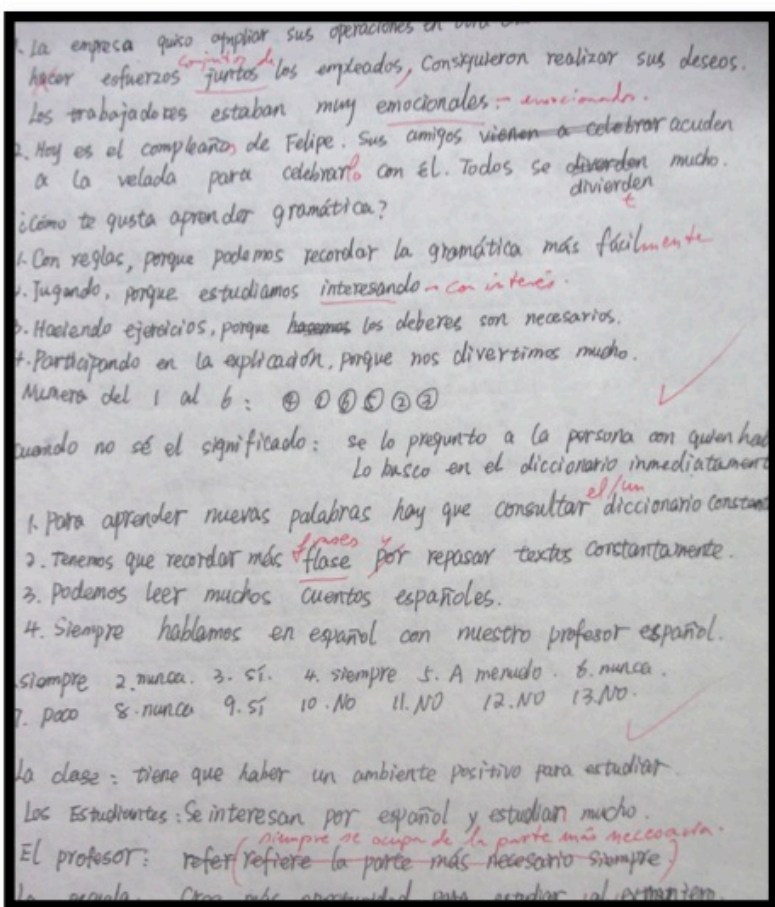 1. La empresa quiso ampliar sus operaciones en
conjuntos de
hacer esfuerzos juntos los empleados, Consiguieron realizar sus deseos.
Los trabajadores estaban muy emocionales. - emocionados.
2. Hoy es el compleaños de Felipe. Sus amigos vienen a celebrar acuden
a la velada para celebrarlo con Él. Todos se diverden mucho.
divierden
t
¿Cómo te gusta aprender gramática?
1. Con reglas, porque podemos recordar la gramática más fácilmente
2. Jugando, porque estudiamos interesando - con interés.
3. Haciendo ejercicios, porque hacemos los deberes son necesarios.
4. Participando en la explicación, porque nos divertimos mucho.
Numera del 1 al 6: ④ ① ⑥ ⑤ ② ③
Cuando no sé el significado: se lo pregunto a la persona con quien
Lo busco en el diccionario inmediatament
el/un
1. Para aprender nuevas palabras hay que consultar diccionario constan
frases y
2. Tenemos que recordar más flase por repasar textos constantamente.
3. Podemos leer muchos cuentos españoles.
4. Siempre hablamos en español con nuestro profesor español.
siempre 2. nunca. 3. sí. 4. siempre 5. A menudo. 6. nunca.
7. poco 8. nunca 9. sí 10. No 11. NO 12. NO 13. NO.
La clase: tiene que haber un ambiente positivo para estudiar.
Los Estudiantes: Se interesan por español y estudian mucho.
siempre se ocupa de la parte más necesaria.
El profesor: refer (refiere la parte más necesario siempre)
más oportunidad para estudiar